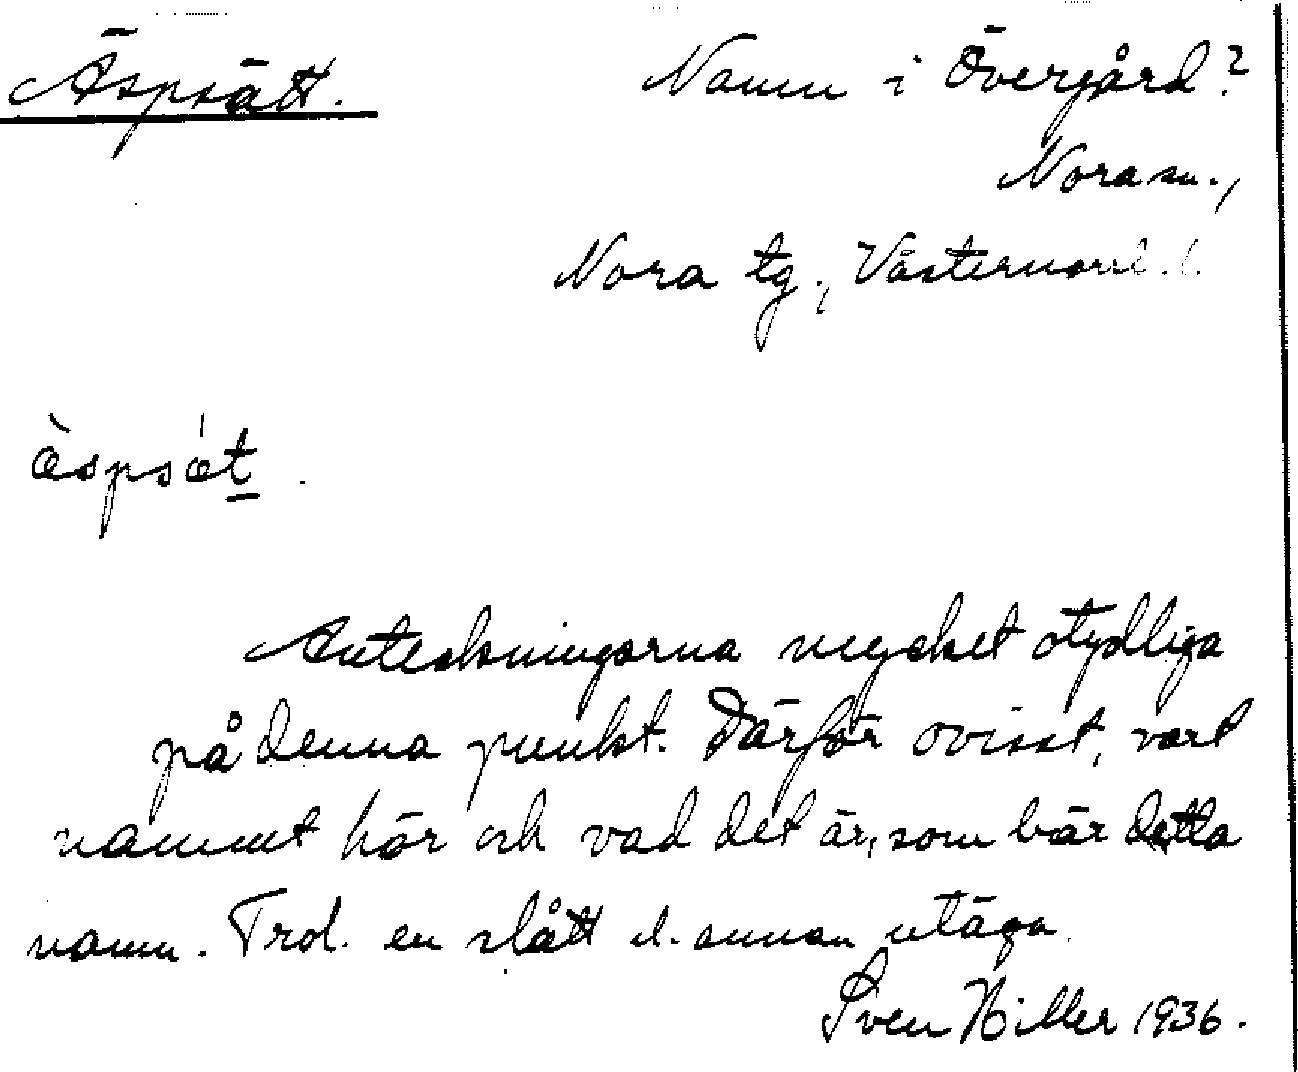 Äspsätt.
Namn i Övergård?
Nora sn.,
Nora tg., Västernorrl. l.
æ̀spsǽt.
Anteckningarna mycket otydliga
på denna punkt. Därför ovisst, vart
namnet hör och vad det är, som bär detta
namn. Trol. en slått el. annan utäga.
Sven Hiller 1936.